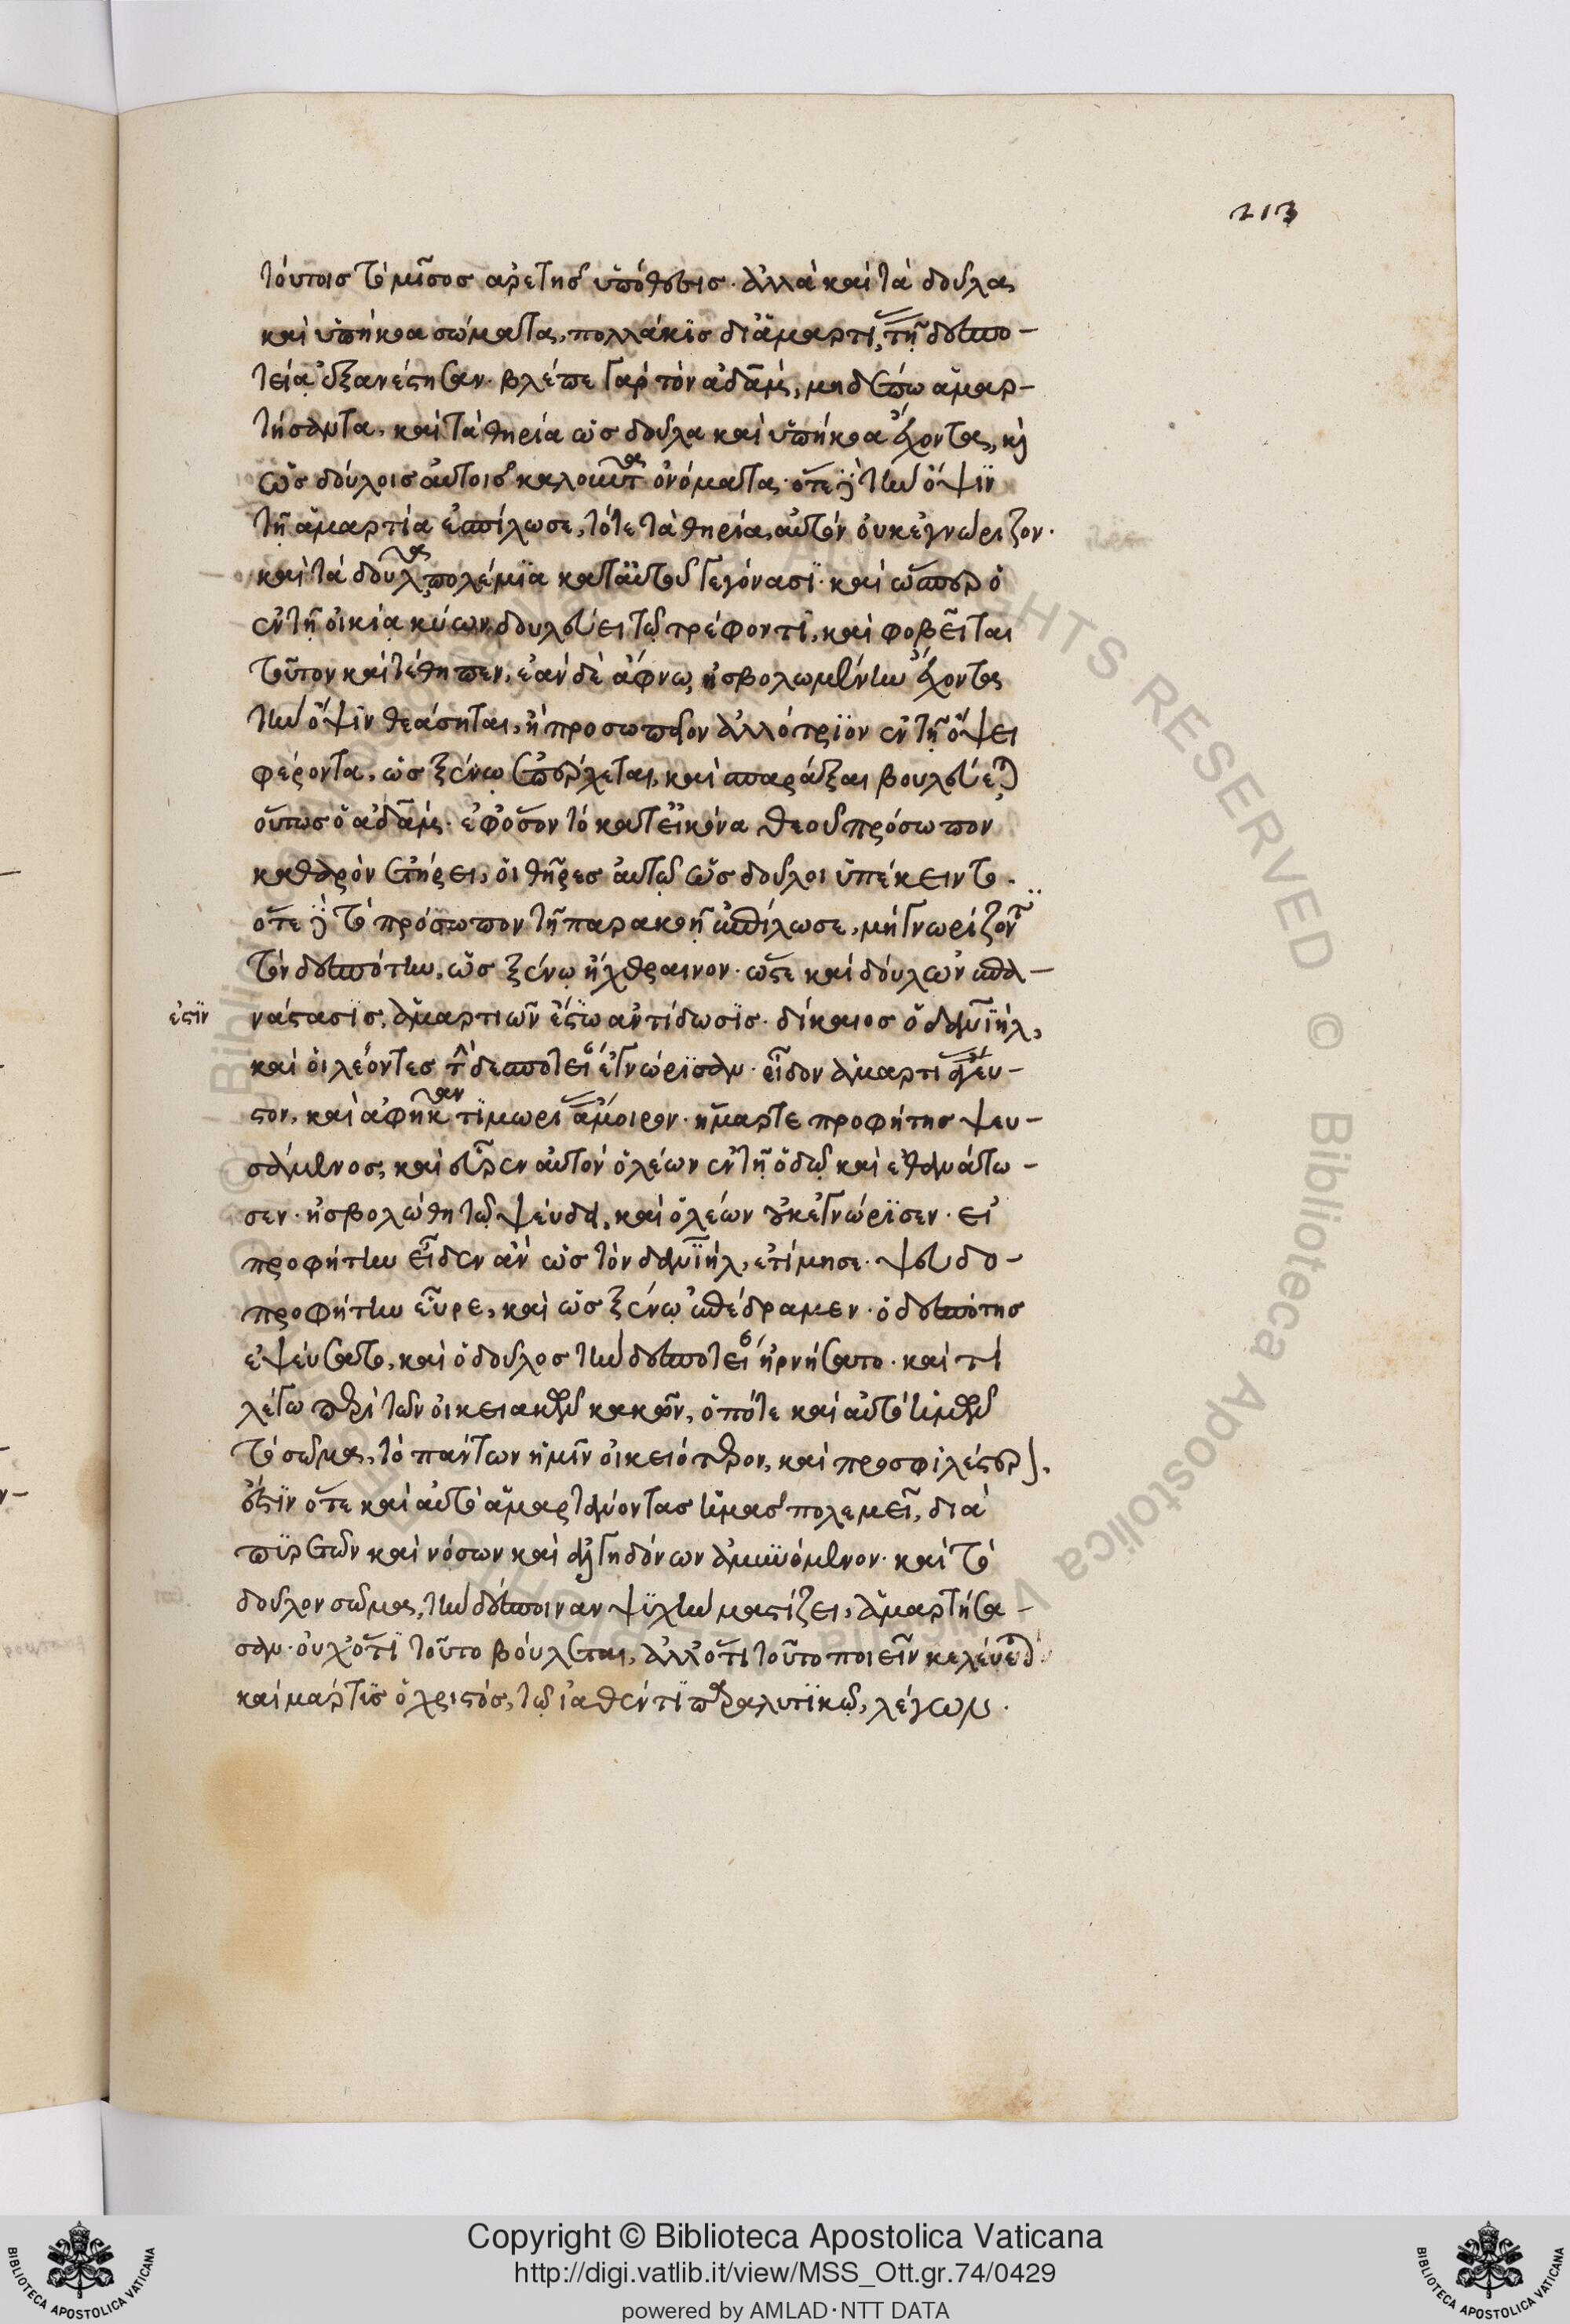 213
τούτοις τὸ μῖσος ἀρετῆς ὑπόθεσις. ἀλλὰ καὶ τὰ δοῦλα
καὶ ὑπήκοα σώματα, πολλάκις δι' ἁμαρτίαν τῆ δεσπο-
τεία ἐξανέστησαν. βλέπε γὰρ τὸν ἀδὰμ, μηδέπω ἁμαρ-
τήσαντα, καὶ τὰ θηρία ὡς δοῦλα καὶ ὑπήκοα ἔχοντα, καὶ
ὡς δούλοις αὐτοῖς καλοῦντα ὀνόματα. ὅτε δὲ τὴν ὄψιν
τῆ ἁμαρτία ἐσπίλωσε, τότε τὰ θηρία, αὐτὸν οὐκ ἐγνώριζον.
καὶ τὰ δοῦλα, πολέμια κατ' αὐτοῦ γεγόνασι. καὶ ὥσπερ ὁ
ἐν τῆ οἰκία κύων, δουλεύει τῶ τρέφοντι, καὶ φοβεῖται
τοῦτον καὶ τέθηπεν, ἐὰν δὲ ἄφνω, ἠσβολωμένην ἔχοντα
τὴν ὄψιν θεάσηται, ἢ προσωπεῖον ἀλλότριον ἐν τῆ ὄψει
φέροντα, ὡς ξένω ἐπέρχεται, καὶ σπαράξαι βουλεύεται,
οὕτως ὁ ἀδὰμ. ἐφ' ὅσον τὸ κατ' εἰκόνα θεοῦ πρόσωπον
καθαρὸν ἐτήρει, οἱ θῆρες αὐτῶ ὡς δοῦλοι ὑπέκειντο.
ὅτε δὲ τὸ πρόσωπον τῆ παρακοῆ ἐσπίλωσε, μὴ γνωρίζοντες
τὸν δεσπότην, ὡς ξένω ἤχθραινον. ὥστε καὶ δούλων ἐπα-
νάστασις, ἁμαρτιῶν ἔστω ἀντίδωσις. δίκαιος ὁ δανιὴλ,
ἐστὶν
καὶ οἱ λέοντες τὸν δεσπότην ἐγνώρισαν. εἶδον ἁμαρτίας ἄγευ-
στον, καὶ ἀφῆκαν τιμωρίας ἄμοιρον. ἥμαρτε προφήτης ψευ-
σάμενος, καὶ εὗρεν αὐτὸν ὁ λέων ἐν τῆ ὁδῶ καὶ ἐθανάτω-
σεν. ἠσβολώθη τῶ ψεύδει, καὶ ὁ λέων οὐκ ἐγνώρισεν. εἰ
προφήτην εἶδεν ἂν ὡς τὸν δανιὴλ, ἐτίμησε. ψευδο-
προφήτην εὗρε, καὶ ὡς ξένω ἐπέδραμεν. ὁ δεσπότης
ἐψεύσατο, καὶ ὁ δοῦλος τὴν δεσποτείαν ἠρνήσατο. καὶ τί
λέγω περὶ τῶν οἰκειακῶν κακῶν, ὁπότε καὶ αὐτὸ ἡμῶν
τὸ σῶμα, τὸ πάντων ἡμῖν οἰκειότερον, καὶ προσφιλέστερον,
ἔστιν ὅτε καὶ αὐτὸ ἁμαρτάνοντας ἡμᾶς πολεμεῖ, διὰ
πυρετῶν καὶ νόσων καὶ ἀλγηδόνων ἀμυνόμενον. καὶ τὸ
δοῦλον σῶμα, τὴν δέσποιναν ψυχὴν μαστίζει, ἁμαρτήσα-
σαν. οὐχ' ὅτι τοῦτο βούλεται, ἀλλ' ὅτι τοῦτο ποιεῖν κελεύεται
καὶ μάρτυς ὁ χριστός, τῶ ἰαθέντι παραλυτικῶ, λέγων.
Copyright © Biblioteca Apostolica Vaticana
http://digi.vatlib.it/view/MSS_Ott.gr.74/0429
powered by AMLAD·NTT DATA